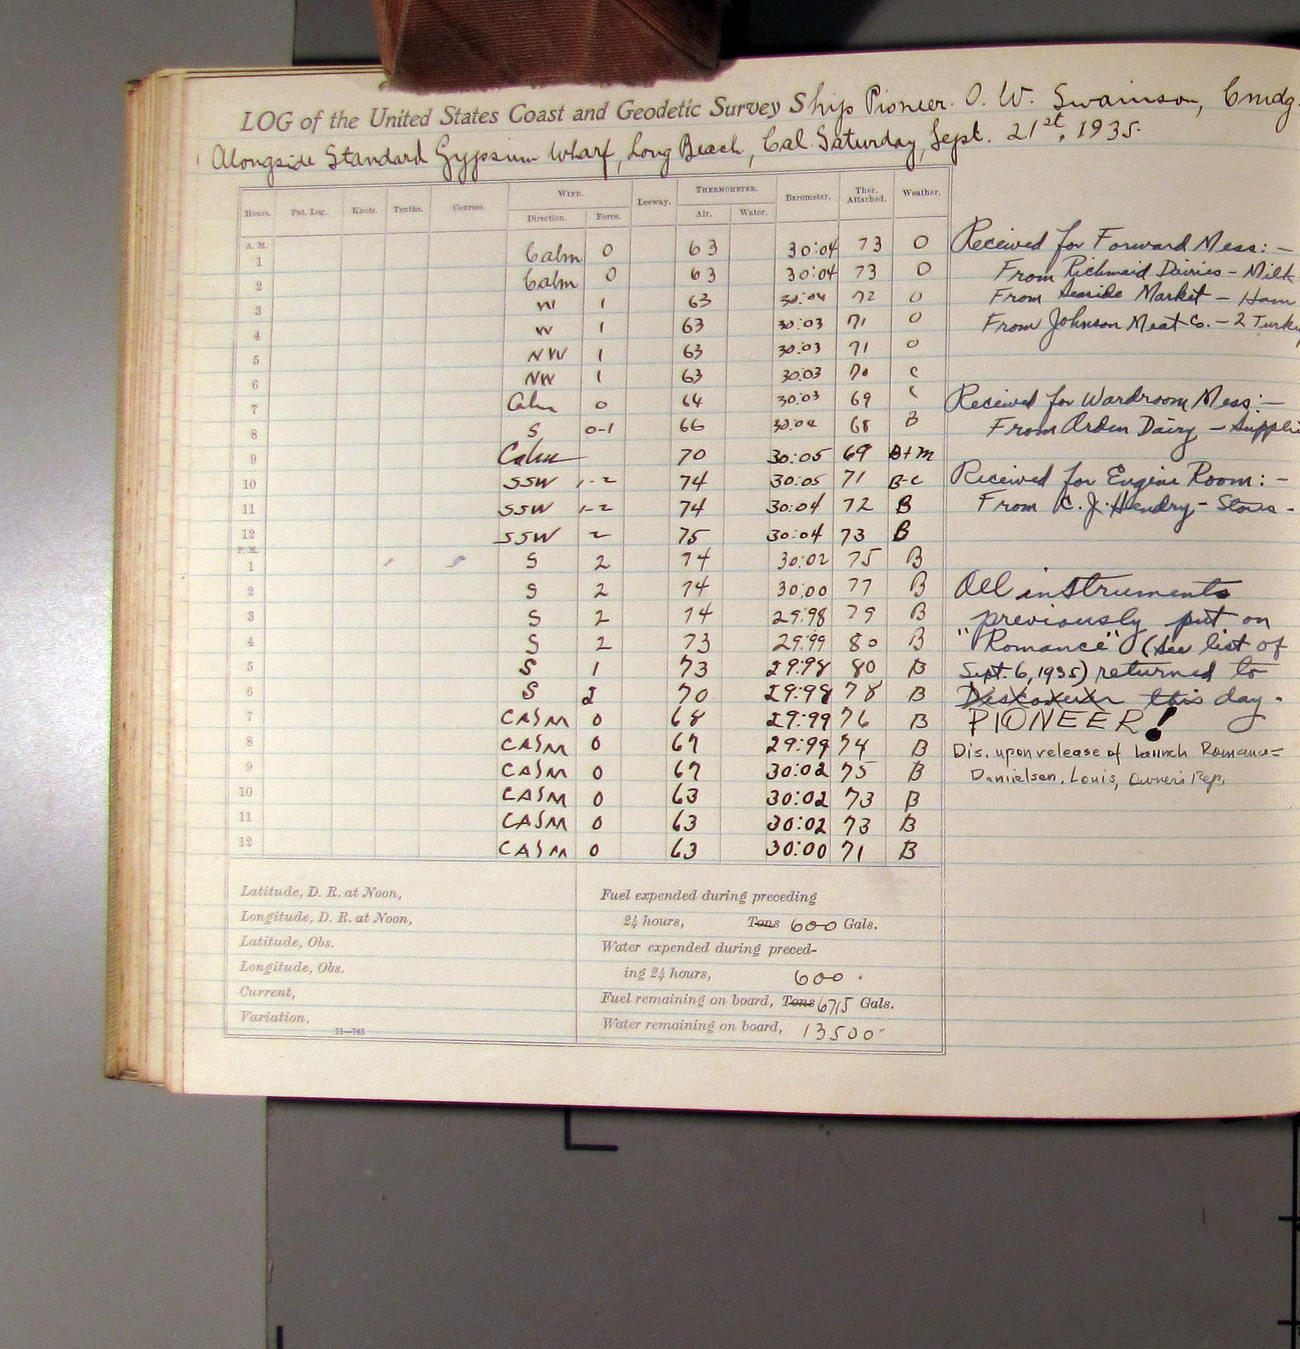 LOG of the United States Coast and Geodetic Survey Ship Pioneer. O. W. Swainson, Cmdg.
Alongside Standard Gypsum Wharf, Long Beach, Cal. Saturday, Sept. 21st, 1935.
Hours. Pat. Log. Knots. Tenths. Courses. WIND. Leeway. THERMOMETER. Barometer. Ther. Attached. Weather.
Direction. Force. Air. Water.
A. M.
1 Calm 0 63 30:04 73 O
2 Calm 0 63 30:04 73 O
3 W 1 63 30:04 72 O
4 W 1 63 30:03 71 O
5 NW 1 63 30:03 71 O
6 NW 1 63 30:03 70 C
7 Calm 0 64 30:03 69 C
8 S 0-1 66 30:04 68 B
9 Calm 70 30:05 69 B+M
10 SSW 1-2 74 30:05 71 B-C
11 SSW 1-2 74 30:04 72 B
12 SSW 2 75 30:04 73 B
P. M.
1 S 2 74 30:02 75 B
2 S 2 74 30:00 77 B
3 S 2 74 29:98 79 B
4 S 2 73 29:99 80 B
5 S 1 73 29:98 80 B
6 S 2 70 29:98 78 B
7 CALM 0 68 29:99 76 B
8 CALM 0 67 29:99 74 B
9 CALM 0 67 30:02 75 B
10 CALM 0 63 30:02 73 B
11 CALM 0 63 30:02 73 B
12 CALM 0 63 30:00 71 B
Received for Forward Mess: -
From Richmaid Dairies - Milk
From Seaside Market - Ham
From Johnson Meat Co. - 2 Turkey
Received for Wardroom Mess: -
From Arden Dairy - Supplie
Received for Engine Room: -
From C. J. Hendry - Stores -
All instruments
previously put on
"Romance" (see list of
Sept. 6, 1935) returned to
Discoverer this day.
PIONEER!
Dis. upon release of launch Romance =
Danielsen, Louis, Owner's Rep.
Latitude, D. R. at Noon,
Longitude, D. R. at Noon,
Latitude, Obs.
Longitude, Obs.
Current,
Variation.
11—743
Fuel expended during preceding
24 hours, Tons 600 Gals.
Water expended during preced-
ing 24 hours, 600.
Fuel remaining on board, Tons 6715 Gals.
Water remaining on board, 13500